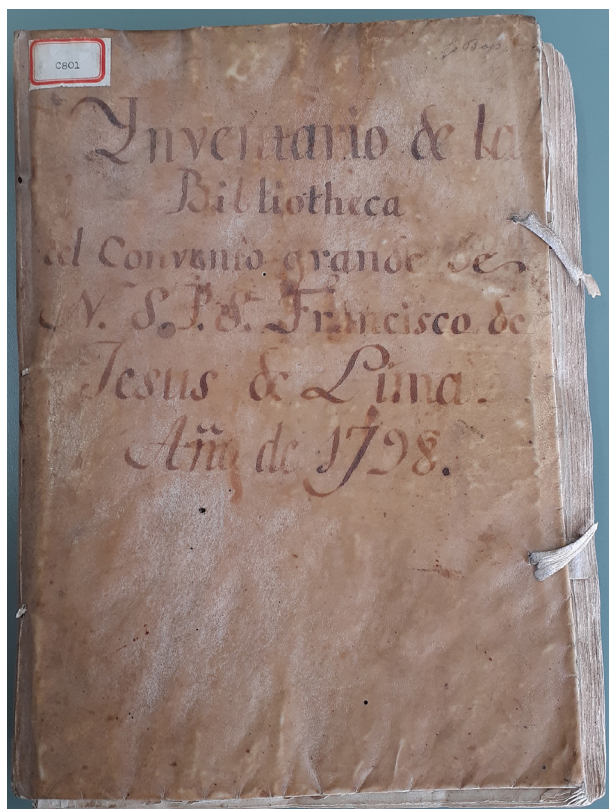 C801
Ynventario de la
Bibliotheca
del Convento grande de
N. S. P. S. Francisco de
Jesus de Lima.
Año de 1798.